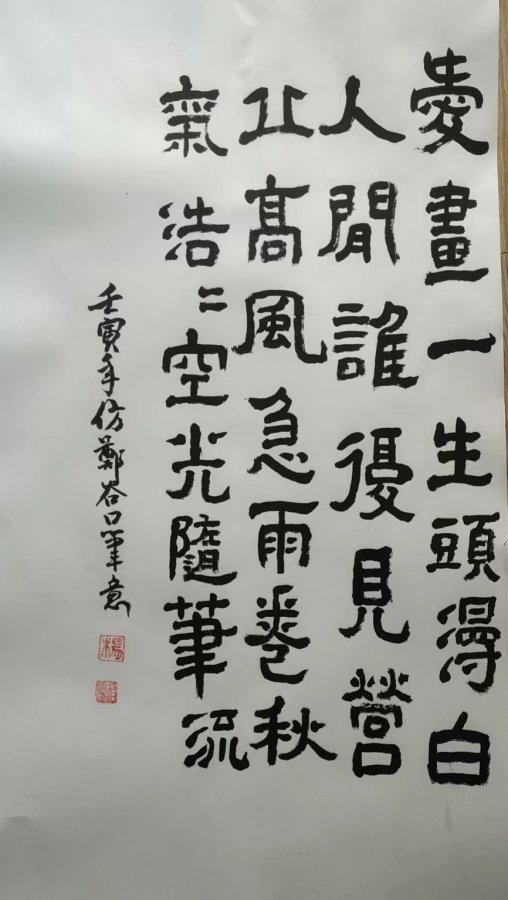 愛畫一生頭得白
人閒誰復見營
丘高風急雨卷秋
氣浩〻空光隨筆流
壬寅年仿鄭谷口筆意
楊